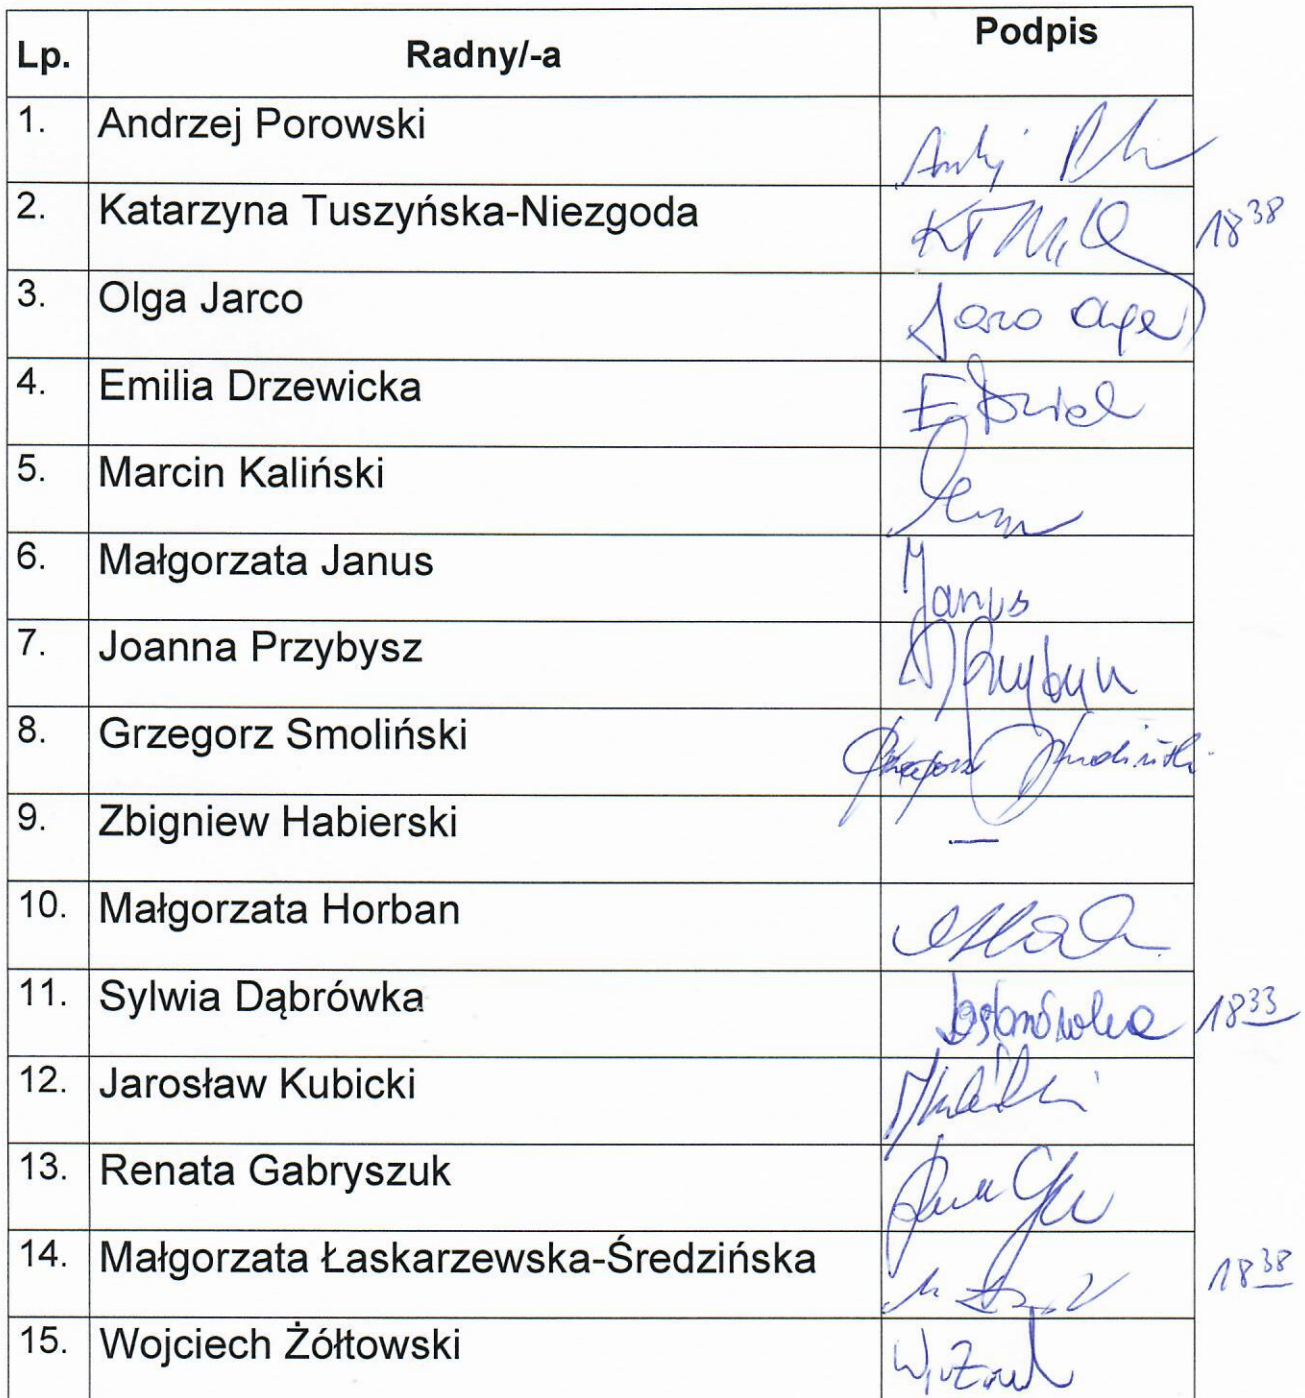 Lp. Radny/-a Podpis
1. Andrzej Porowski
2. Katarzyna Tuszyńska-Niezgoda 18³⁸
3. Olga Jarco
4. Emilia Drzewicka
5. Marcin Kaliński
6. Małgorzata Janus Janus
7. Joanna Przybysz
8. Grzegorz Smoliński
9. Zbigniew Habierski —
10. Małgorzata Horban
11. Sylwia Dąbrówka 18³³
12. Jarosław Kubicki
13. Renata Gabryszuk
14. Małgorzata Łaskarzewska-Średzińska 18³⁸
15. Wojciech Żółtowski